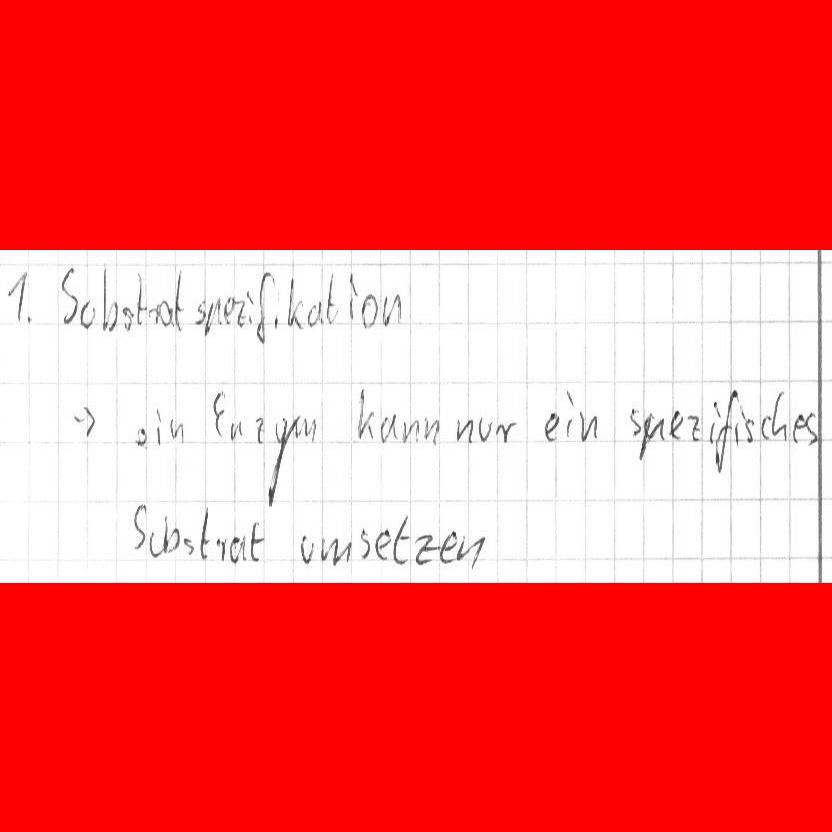 1. Substratspezifikation
→ ein Enzym kann nur ein spezifisches
Substrat umsetzen